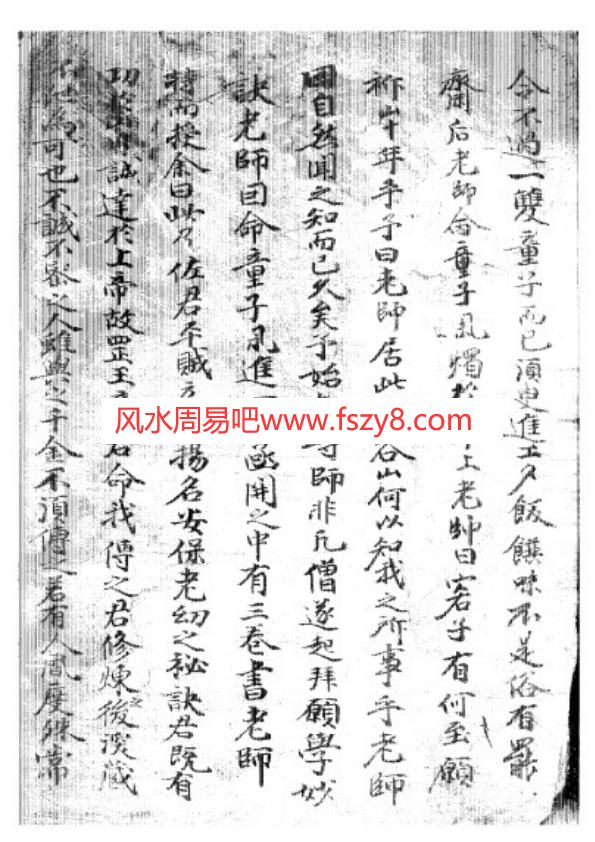 合不過一雙童子而已須臾進工夕飯饌味不是俗有罷
齋后老師命童子風燭於 上老師曰客子有何至願
祈 年乎予曰老師居此 谷山何以知我之所事乎老師
回自然聞之知而已久矣予始 師非凡僧遂起拜願學妙
訣老師回命童子風進 函開之中有三卷書老師
特而授余曰此乃佐君平賊 揚名安保老幼之秘訣君既有
功 誠達於上帝故罡王 君命我傳之君修煉後之深藏
可也不誠不密之人雖與之千金不須傳之若有人風度殊常
风水周易吧 www.fszy8.com